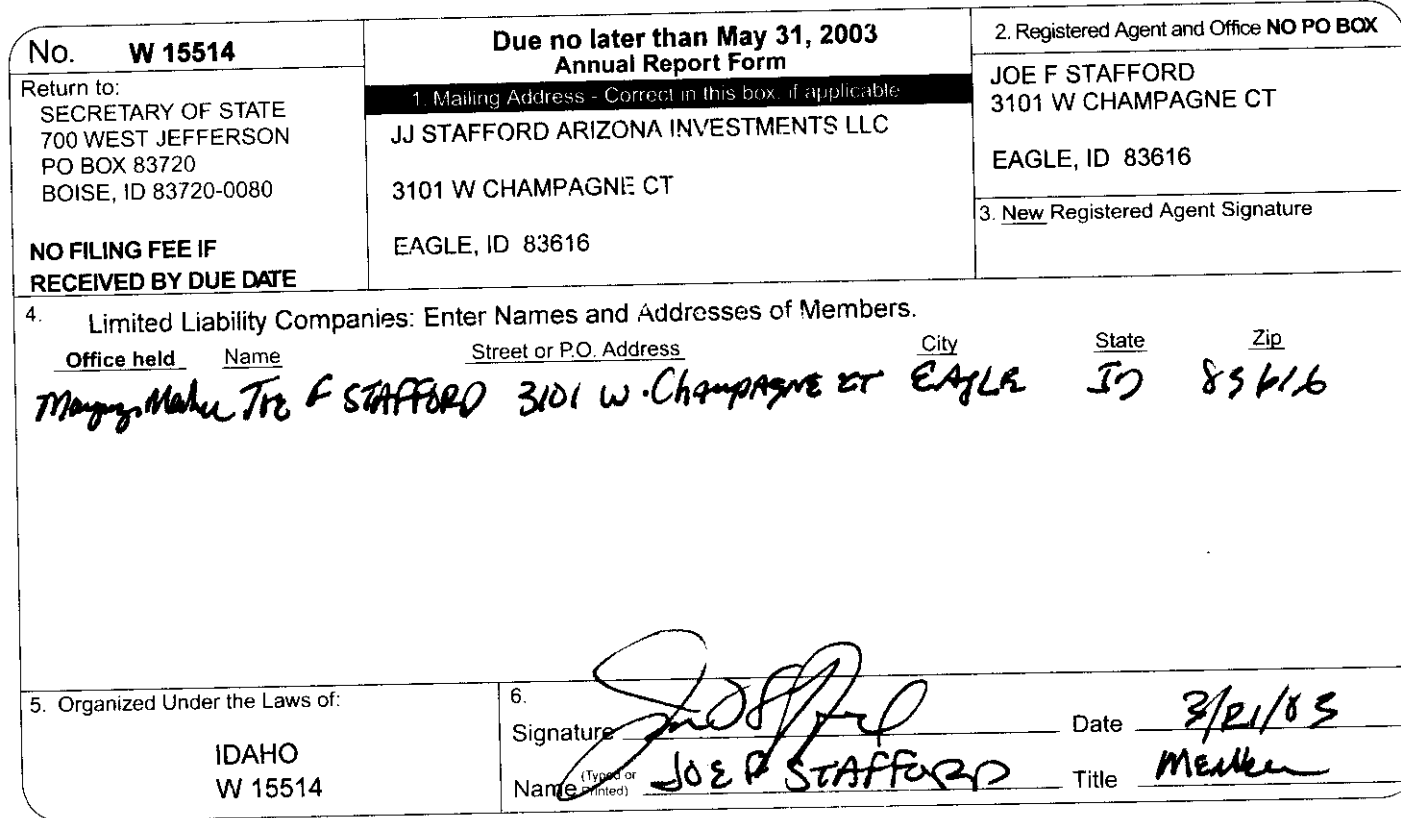 No. W 15514
Return to:
SECRETARY OF STATE
700 WEST JEFFERSON
PO BOX 83720
BOISE, ID 83720-0080
NO FILING FEE IF
RECEIVED BY DUE DATE
Due no later than May 31, 2003
Annual Report Form
1. Mailing Address - Correct in this box, if applicable
JJ STAFFORD ARIZONA INVESTMENTS LLC
3101 W CHAMPAGNE CT
EAGLE, ID 83616
2. Registered Agent and Office NO PO BOX
JOE F STAFFORD
3101 W CHAMPAGNE CT
EAGLE, ID 83616
3. New Registered Agent Signature
4. Limited Liability Companies: Enter Names and Addresses of Members.
Office held Name Street or P.O. Address City State Zip
Joe F STAFFORD 3101 W. Champagne CT EAgLE ID 83616
5. Organized Under the Laws of:
IDAHO
W 15514
6.
Signature Date 3/21/03
Name (Typed or Printed) JOE F STAFFORD Title Member